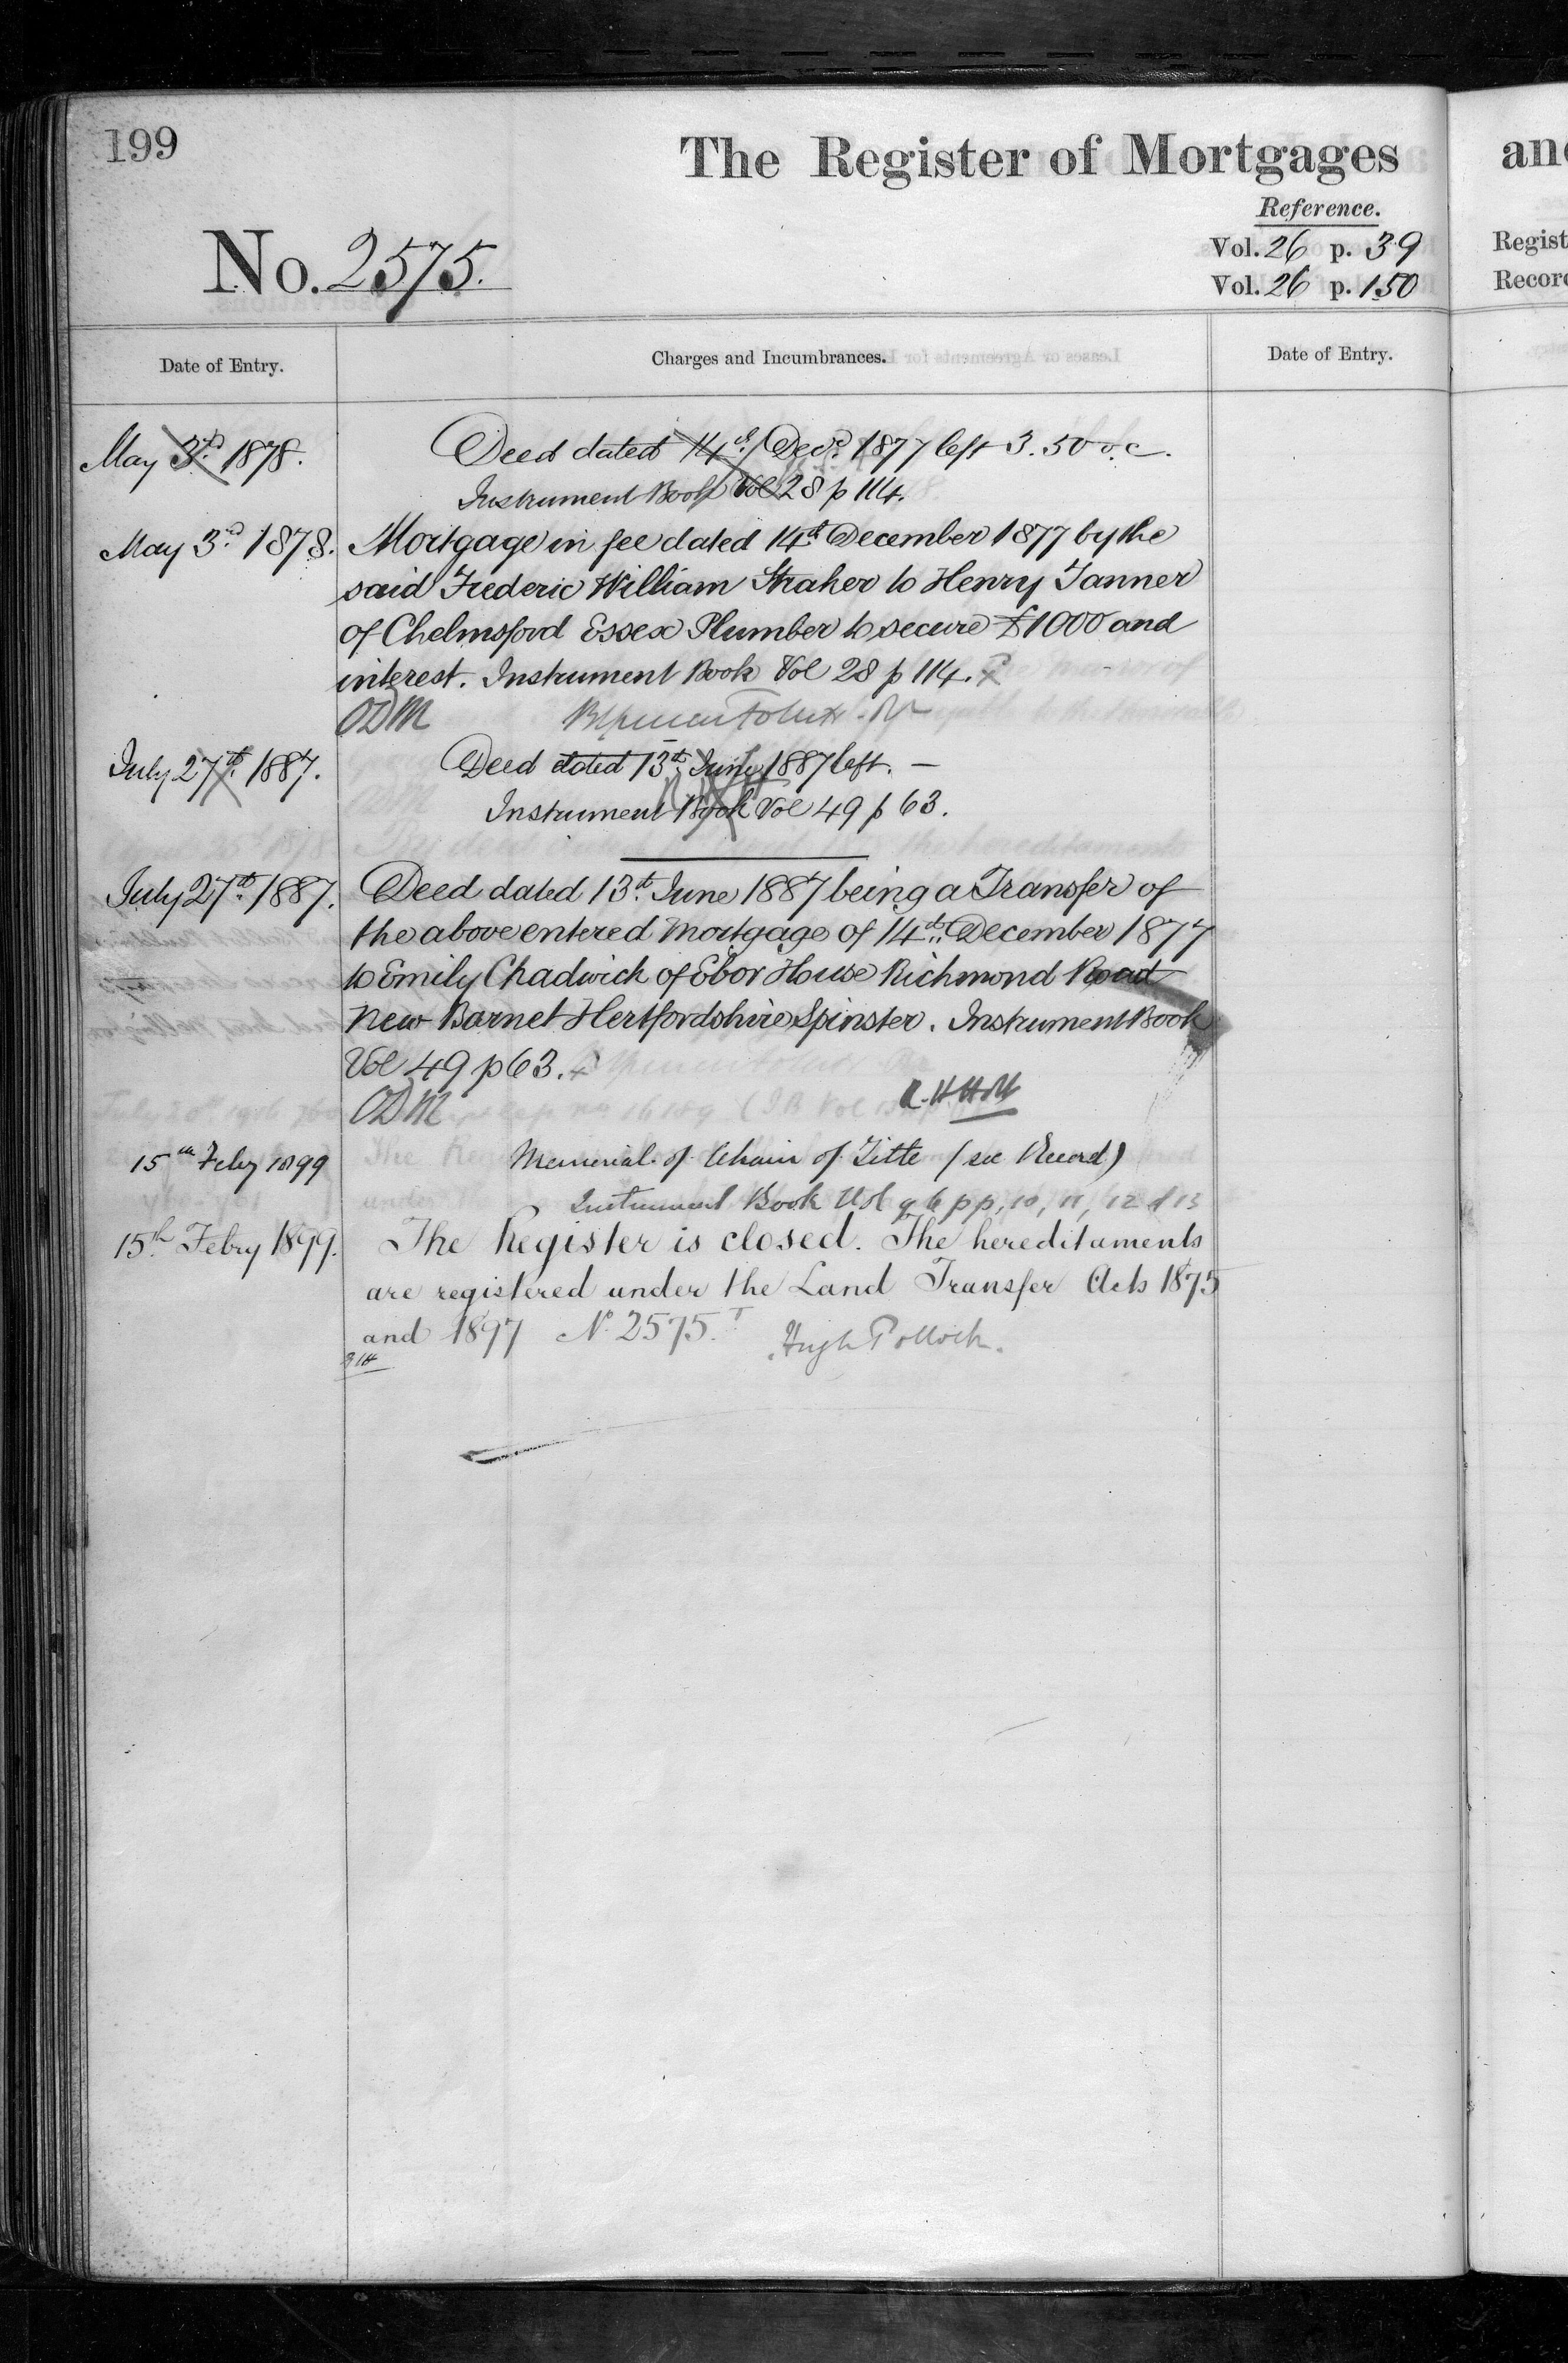 199
The Register of Mortgages
an
Reference.
No. 2575.
Vol. 26 p. 39
Regist
Vol. 26 p. 150
Recor
Date of Entry.
Charges and Incumbrances.
Date of Entry.
May 3rd 1878.
Deed dated 14th Decr 1877 left 3.50 o.c.
Instrument Book Vol 28 p 114.
May 3rd 1878.
Mortgage in fee dated 14th December 1877 by the
said Frederic William Straker to Henry Tanner
of Chelmsford Essex Plumber to secure £1000 and
interest. Instrument Book Vol 28 p 114.
ODM
July 27th 1887.
Deed dated 13th June 1887 left. —
Instrument Book Vol 49 p 63.
July 27th 1887.
Deed dated 13th June 1887 being a Transfer of
the above entered Mortgage of 14th December 1877
to Emily Chadwick of Ebor House Richmond Road
New Barnet Hertfordshire Spinster. Instrument Book
Vol 49 p 63.
ODM
15th Feby 1899
Memorial of Chain of Title (see Record)
Instrument Book Vol 96 pp, 10, 11, 12 & 13
15th Febry 1899.
The Register is closed. The hereditaments
are registered under the Land Transfer Acts 1875
and 1897 No 2575.T
Hugh Pollock.